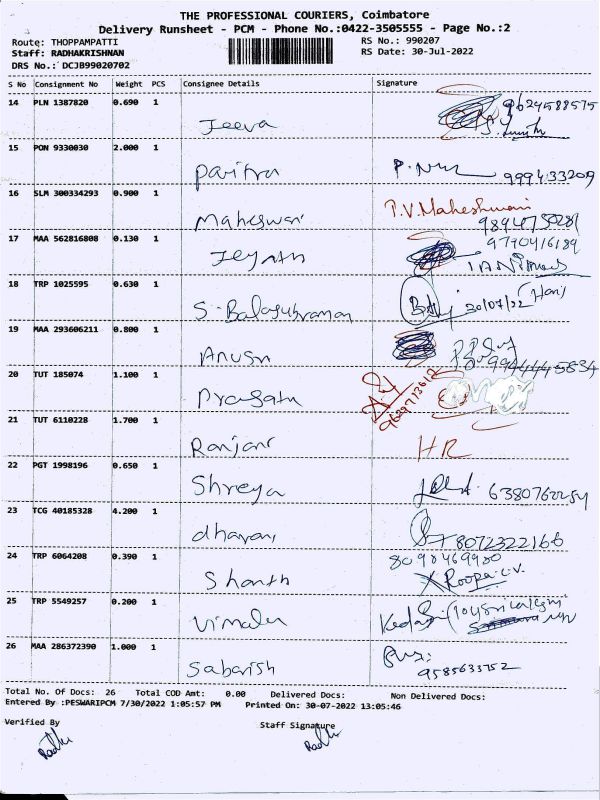 THE PROFESSIONAL COURIERS, Coimbatore
Delivery Runsheet - PCM - Phone No.:0422-3505555 - Page No.:2
Route: THOPPAMPATTI RS No.: 990207
Staff: RADHAKRISHNAN RS Date: 30-Jul-2022
DRS No.: DCJB99020702
S No Consignment No Weight PCS Consignee Details Signature
14 PLN 1387820 0.690 1
Jeeva
15 PON 9330030 2.000 1
Pavitra 9994133209
16 SLM 300334293 0.900 1
Maheswari T.V.Maheshwari
9894750281
17 MAA 562816808 0.130 1 9790416189
Jeyanth
18 TRP 1025595 0.630 1
S. Balasubraman 30/07/22 (Hari)
19 MAA 293606211 0.800 1
Anush
20 TUT 185074 1.100 1
Prasath 9629713612
21 TUT 6110228 1.700 1
Ranjani HR
22 PGT 1998196 0.650 1
Shreya 6380762284
23 TCG 40185328 4.200 1
dharani 8072322166
24 TRP 6064208 0.390 1 8098469980
Shanth Roopa.C.V.
25 TRP 5549257 0.200 1
Vimala
26 MAA 286372390 1.000 1
Sabarish 9585633752
Total No. Of Docs: 26 Total COD Amt: 0.00 Delivered Docs: Non Delivered Docs:
Entered By :PESWARIPCM 7/30/2022 1:05:57 PM Printed On: 30-07-2022 13:05:46
Verified By Staff Signature
Radha Radha